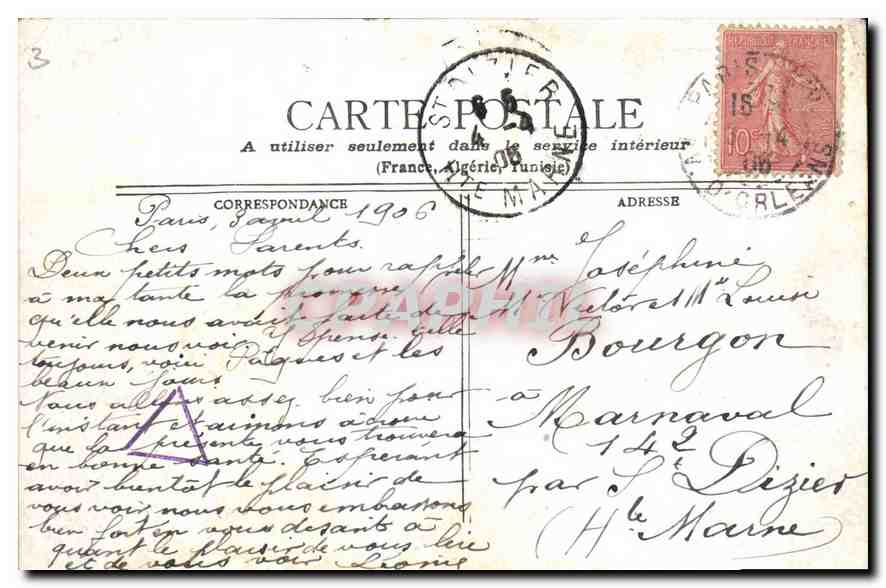 3
CARTE POSTALE
A utiliser seulement dans le service intérieur
(France, Algérie, Tunisie)
CORRESPONDANCE
ADRESSE
REPUBLIQUE FRANÇAISE
10c
PARIS
15
4
06
D'ORLEANS
ST DIZIER
6 5
4 -4
06
HTE MARNE
Paris, 3 avril 1906
Chers Parents.
Deux petits mots pour rappeler
à ma tante la promesse
qu'elle nous avait faite de
venir nous voir y pense t'elle
toujours, voici Pâques et les
beaux jours
Nous allons assez bien pour
l'instant et aimons à croire
que la présente vous trouvera
en bonne santé. Espérant
avoir bientôt le plaisir de
vous voir nous vous embrassons
bien fort en vous disant à
quant le plaisir de vous lire
et de vous voir Léonie
Mme Joséphine
Mr Victor et Mlle Louise
Bourgon
à
Marnaval
142
par St Dizier
(Hte Marne)
CPAPHIL